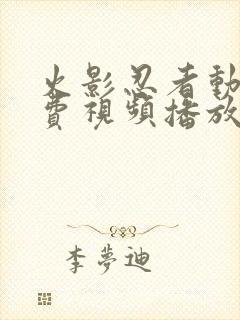 火影忍者動
費視頻播放
李夢迪